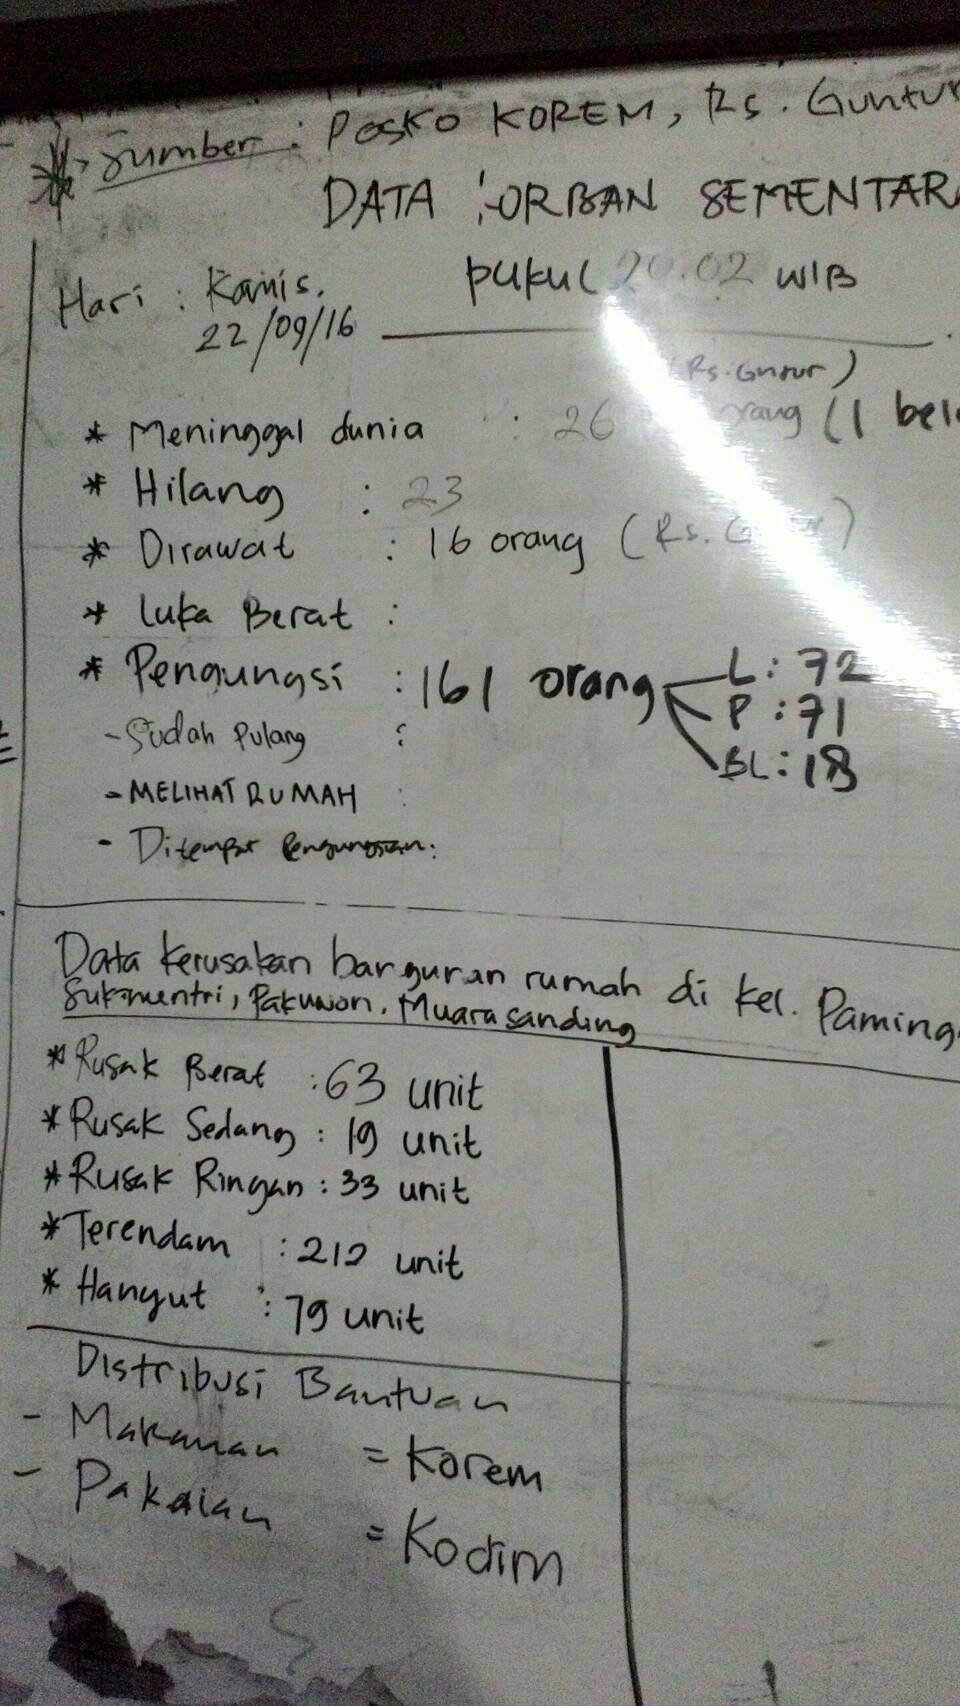 Sumber : POSKO KOREM, Rs. Guntur
DATA KORBAN SEMENTARA
Hari : Kamis, pukul 20.02 WIB
22/09/16
(Rs. Guntur)
* Meninggal dunia : 26 orang (1
* Hilang : 23
* Dirawat : 16 orang (Rs. Guntur)
* Luka Berat :
* Pengungsi : 161 orang L : 72
P : 71
BL : 18
- Sudah Pulang :
- MELIHAT RUMAH :
- Ditempat Pengungsian :
Data Kerusakan bangunan rumah di Kel. Paming
Sukamentri, Pakuwon, Muara sanding
* Rusak Berat : 63 unit
* Rusak Sedang : 19 unit
* Rusak Ringan : 33 unit
* Terendam : 212 unit
* Hanyut : 79 unit
Distribusi Bantuan
- Makanan = Korem
- Pakaian = Kodim